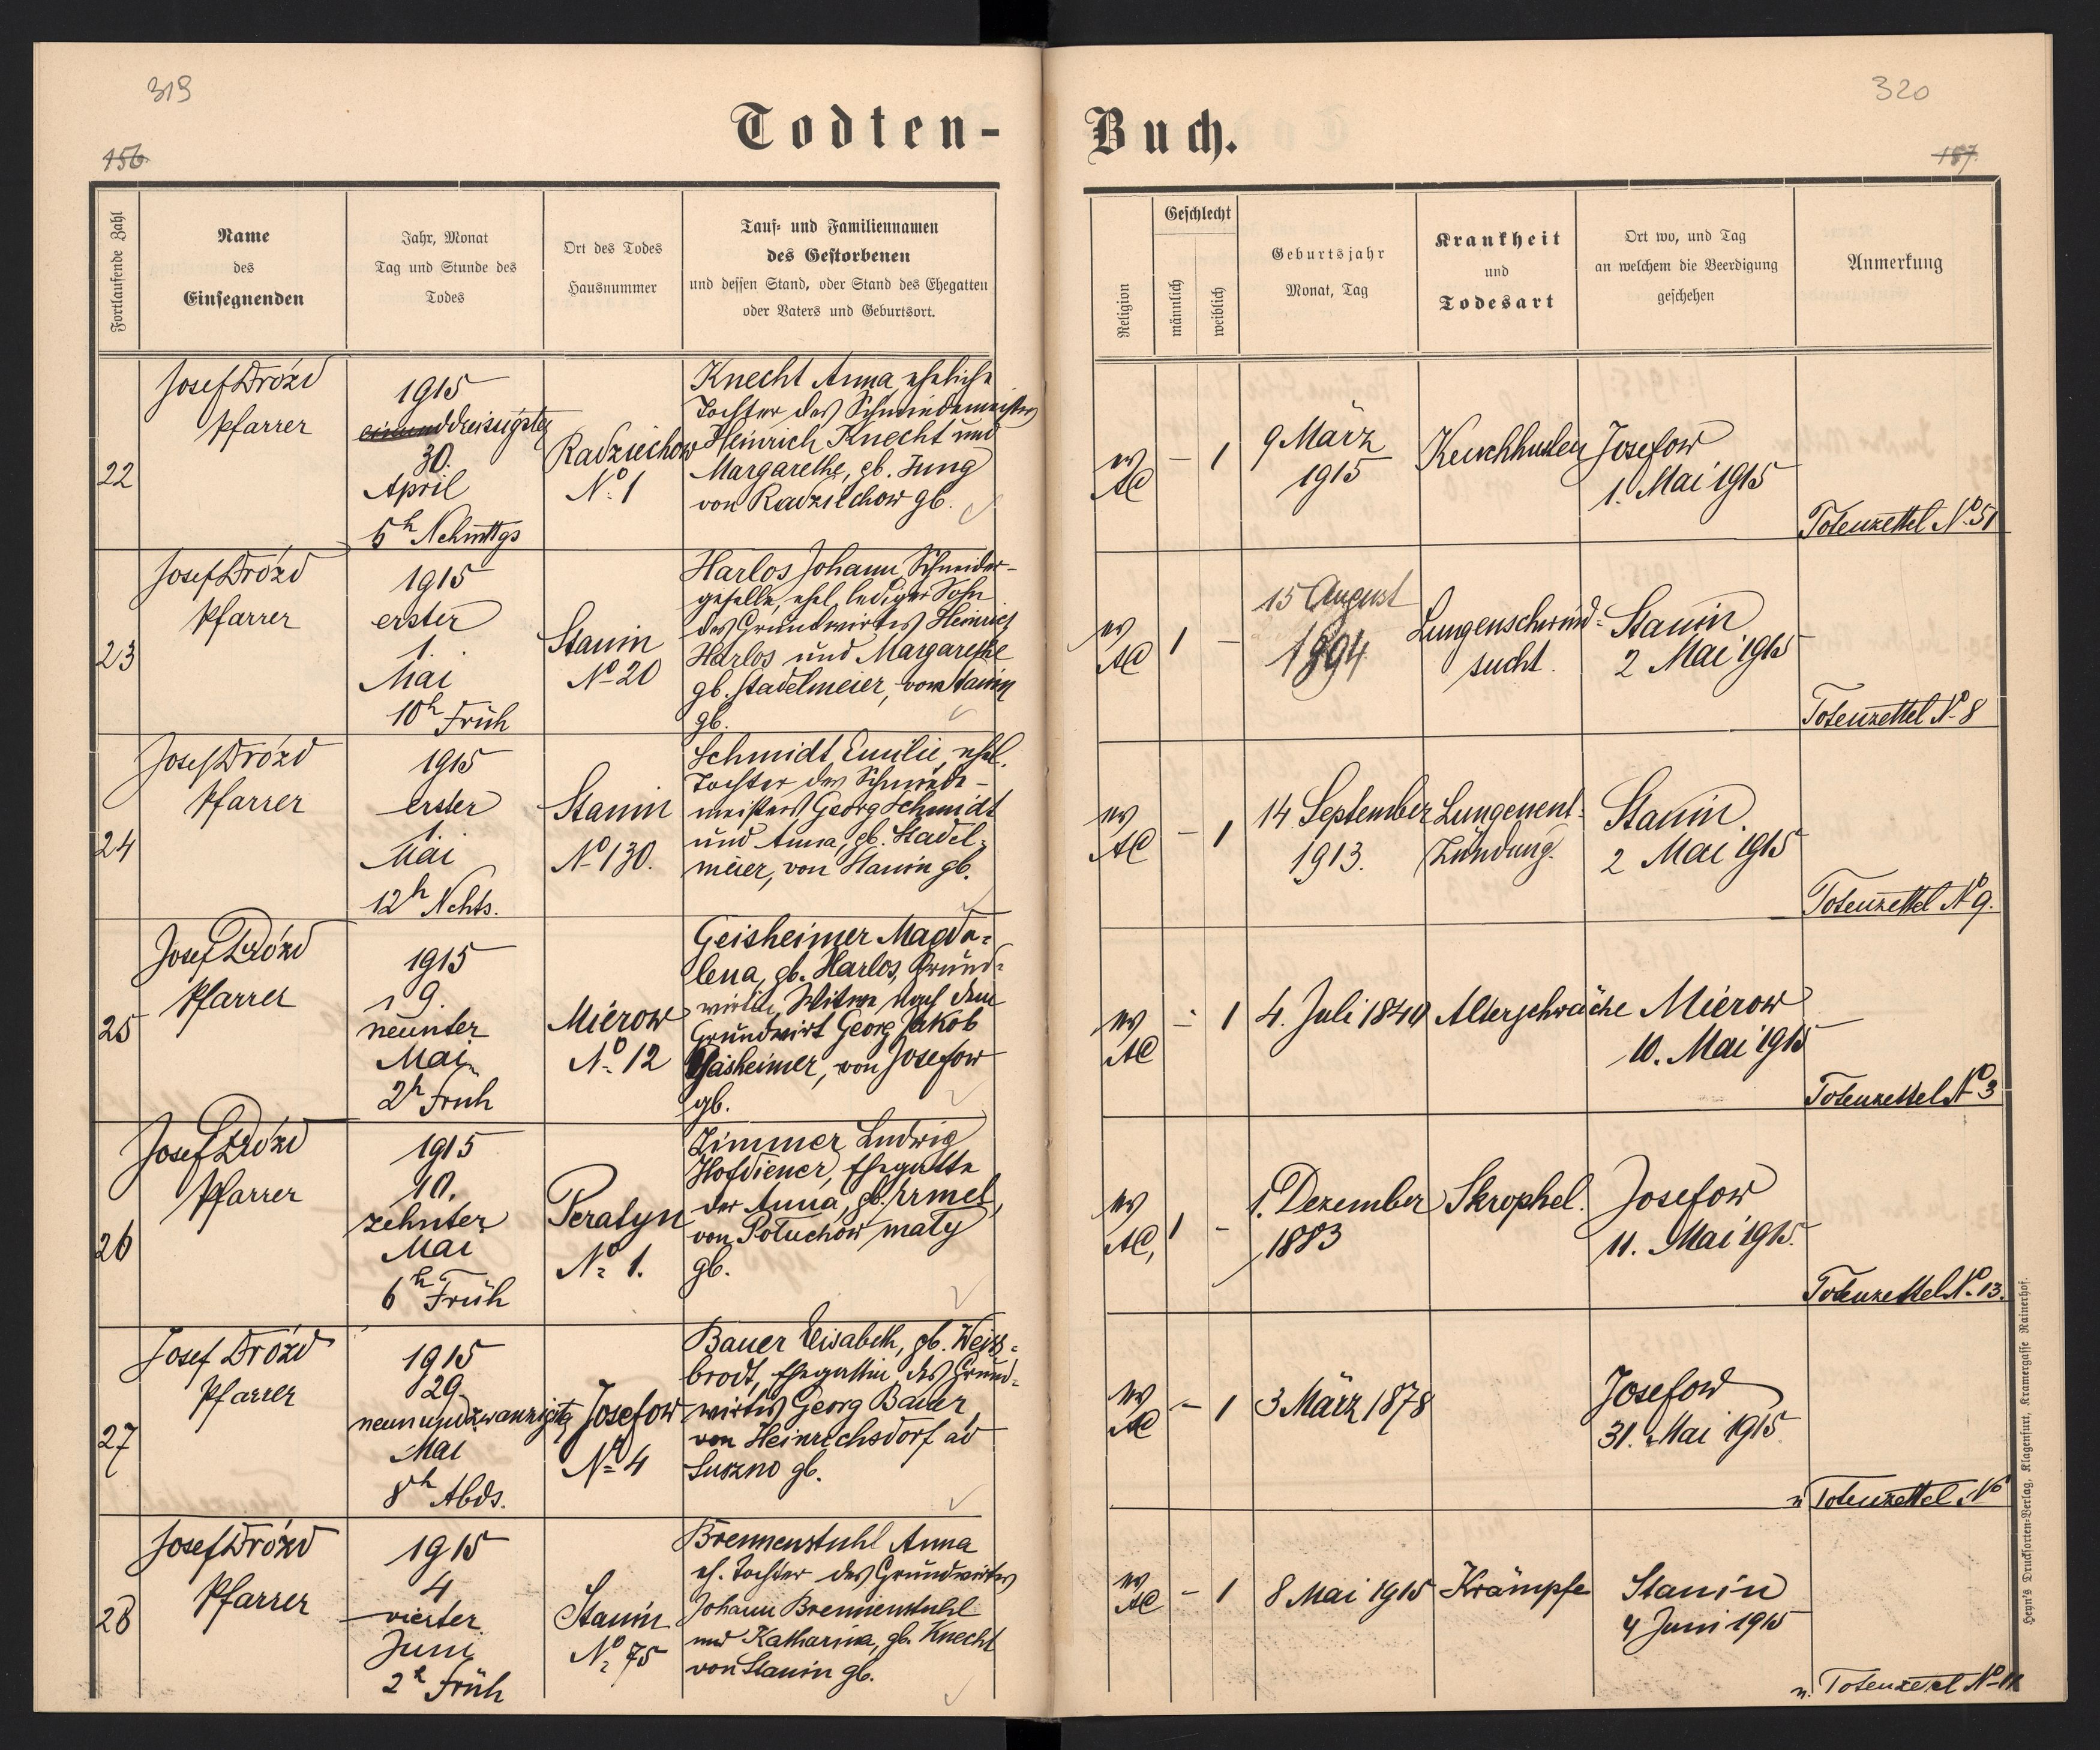 319
156
Todten-
Fortlaufende Zahl
Name
des
Einsegnenden
Jahr, Monat
Tag und Stunde des
Todes
Ort des Todes
Hausnummer
Tauf- und Familiennamen
des Gestorbenen
und dessen Stand, oder Stand des Ehegatten
oder Vaters und Geburtsort.
22
Josef Drózd
Pfarrer
1915
einunddreisigster
30.
April
5h Nchmttgs
Radziechow
No. 1
Knecht Anna, eheliche
Tochter des Schmiedemeisters
Heinrich Knecht und
Margarethe, gb. Jung
von Radziechow gb.
23
Josef Drózd
Pfarrer
1915
erster
1.
Mai
10h Früh
Stanin
No 20
Harlos Johann, Schneider-
geselle, ehel. lediger Sohn
des Grundwirtes Heinrich
Harlos und Margarethe
gb. Stadelmeier, von Stanin
gb.
24
Josef Drózd
Pfarrer
1915
erster
1.
Mai
12h Nchts.
Stanin
No 130.
Schmidt Emilie, ehel.
Tochter des Schmiede-
meisters Georg Schmidt
und Anna, gb. Stadel-
meier, von Stanin gb.
25
Josef Drózd
Pfarrer
1915
9.
neunter
Mai
2h Früh
Mierow
No. 12
Geisheimer Magda-
lena, gb. Harlos, Grund-
wirtin, Witwe nach dem
Grundwirt Georg Jakob
Gasheimer, von Josefow
gb.
26
Josef Drózd
Pfarrer
1915
10.
zehnter
Mai
6h Früh
Peratyn
No. 1.
Zimmer Ludwig
Hofdiener, Ehegatte
der Anna, gb. Irmel,
von Poluchow maly
gb.
27
Josef Drózd
Pfarrer
1915
29
neunundzwanzigstg
Mai
8h Abds.
Josefow
No 4
Bauer Elisabeth, gb. Weiss-
brodt, Ehegattin des Grund-
wirtes Georg Bauer,
von Heinrichsdorf ad
Suszno gb.
28
Josef Drózd
Pfarrer
1915
4
vierter
Juni
2h Früh
Stanin
No. 75
Brennenstuhl Anna
eh. Tochter des Grundwirtes
Johann Brennenstuhl
und Katharina, gb. Knecht
von Stanin gb.
320
157
Buch.
Religion
Geschlecht
männlich
weiblich
Geburtsjahr
Monat, Tag
Krankheit
und
Todesart
Ort wo, und Tag
an welchem die Beerdigung
geschehen
Anmerkung
ev
AC
-
1
9 März
1915
Keuchhusten
Josefow
1. Mai 1915
Totenzettel No 51
ev
AC
1
-
15 August
1894
Lungenschwind-
sucht.
Stanin
2 Mai 1915
Totenzettel No 8
ev
AC
-
1
14 September
1913.
Lungenent-
zündung.
Stanin.
2 Mai 1915
Totenzettel No 9.
ev
AC
-
1
4. Juli 1840
Altersschwäche
Mierow
10. Mai 1915
Totenzettel No 3
ev
AC,
1
-
1. Dezember
1883
Skrophel.
Josefow
11. Mai 1915.
Totenzettel No. 13.
ev
AC
-
1
3 März 1878
Josefow
31. Mai 1915
Totenzettel No
ev
AC
-
1
8 Mai 1915
Krämpfe
Stanin
4 Juni 1915
Totenzettel No 11
Heyn's Drucksorten-Verlag, Klagenfurt, Kramergasse Rainerhof.